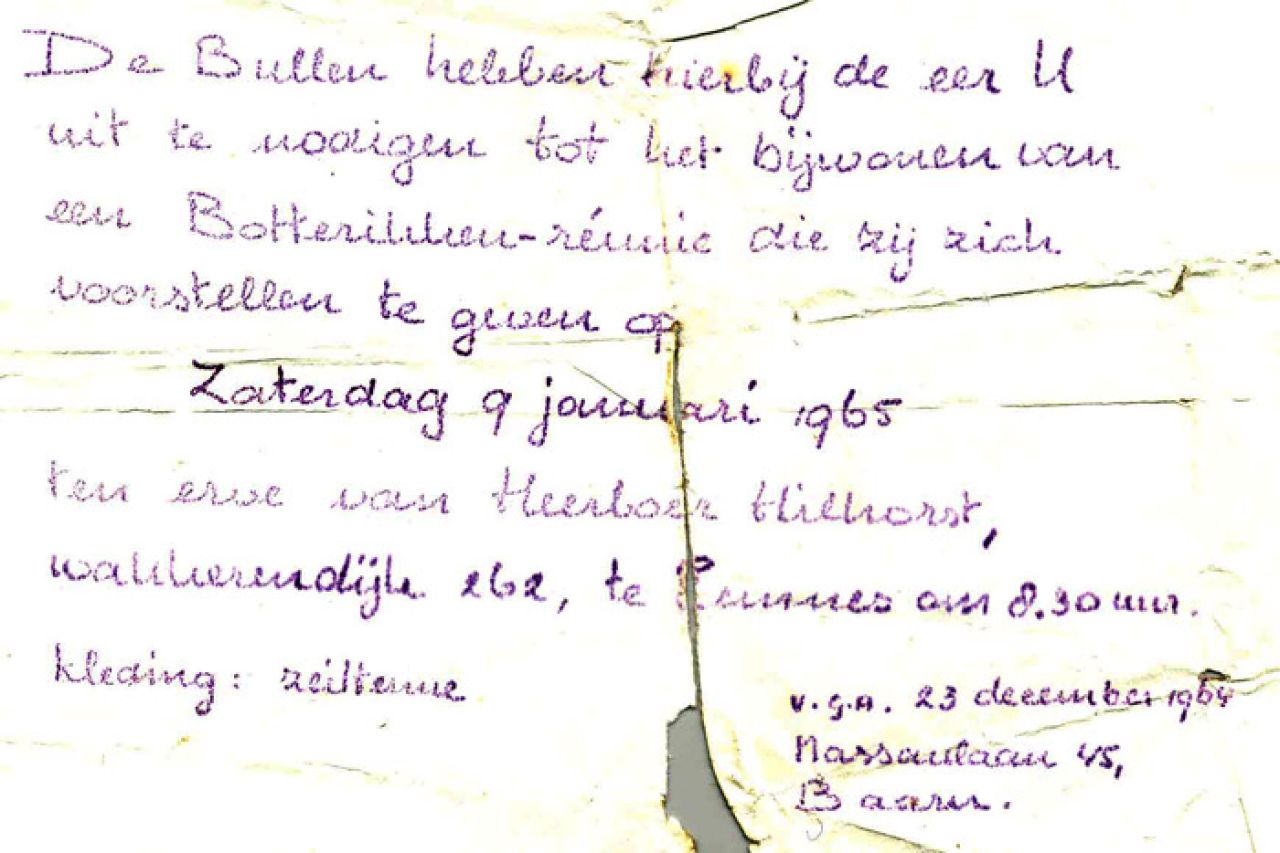 De Bullen hebben hierbij de eer U
uit te nodigen tot het bijwonen van
een Botterikken-réunie die zij zich
voorstellen te geven op
Zaterdag 9 januari 1965
ten erve van Heerboer Hilhorst,
wakkerendijk 262, te Eemnes om 8.30 uur.
kleding: zeiltenue
v.g.a. 23 december 1964
Nassaulaan 45,
Baarn.